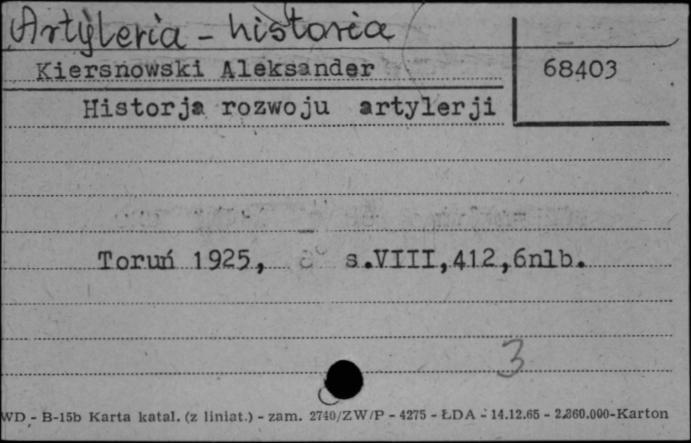 Artyleria - historia
Kiersnowski Aleksander 68403
Historja rozwoju artylerji
Toruń 1925, 8° s.VIII,412,6nlb.
3
WD - B-15b Karta katal. (z liniat.) - zam. 2740/ZW/P - 4275 - ŁDA - 14.12.65 - 2.860.000-Karton